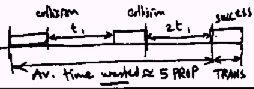 collision collision SUCCESS
t₁ 2t₁
Av. time wasted ≈ 5 PROP TRANS